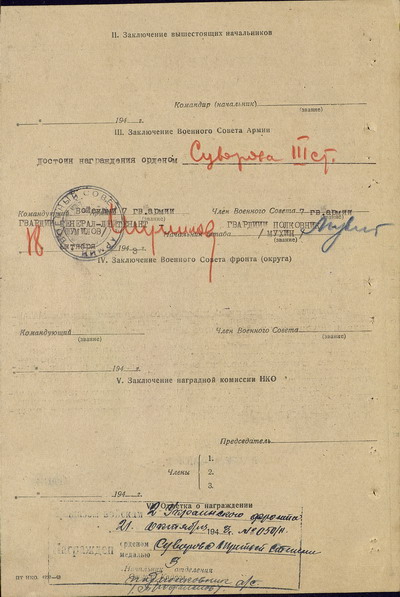 II. Заключение вышестоящих начальников
Командир (начальник)
(звание)
" " 194 г.
III. Заключение Военного Совета Армии
достоин награждения орденом Суворова III ст.
Командующий войсками 7 гв.армии
Член Военного Совета 7 гв.армии
ГВАРДИИ ГЕНЕРАЛ-ЛЕЙТЕНАНТ
ГВАРДИИ ПОЛКОВНИК
ШУМИЛОВ
Начальник штаба
/ МУХИН /
(звание)
18 194 3 г.
IV. Заключение Военного Совета фронта (округа)
Командующий
(звание)
Член Военного Совета
(звание)
" " 194 г.
V. Заключение наградной комиссии НКО
Председатель
Члены
1.
2.
3.
" " 194 г.
VI. Отметка о награждении
2 Украинского фронта
21. октября 1943 г. № 050/н.
Награжден
орденом
медалью
Суворова третьей степени
Начальник отделения